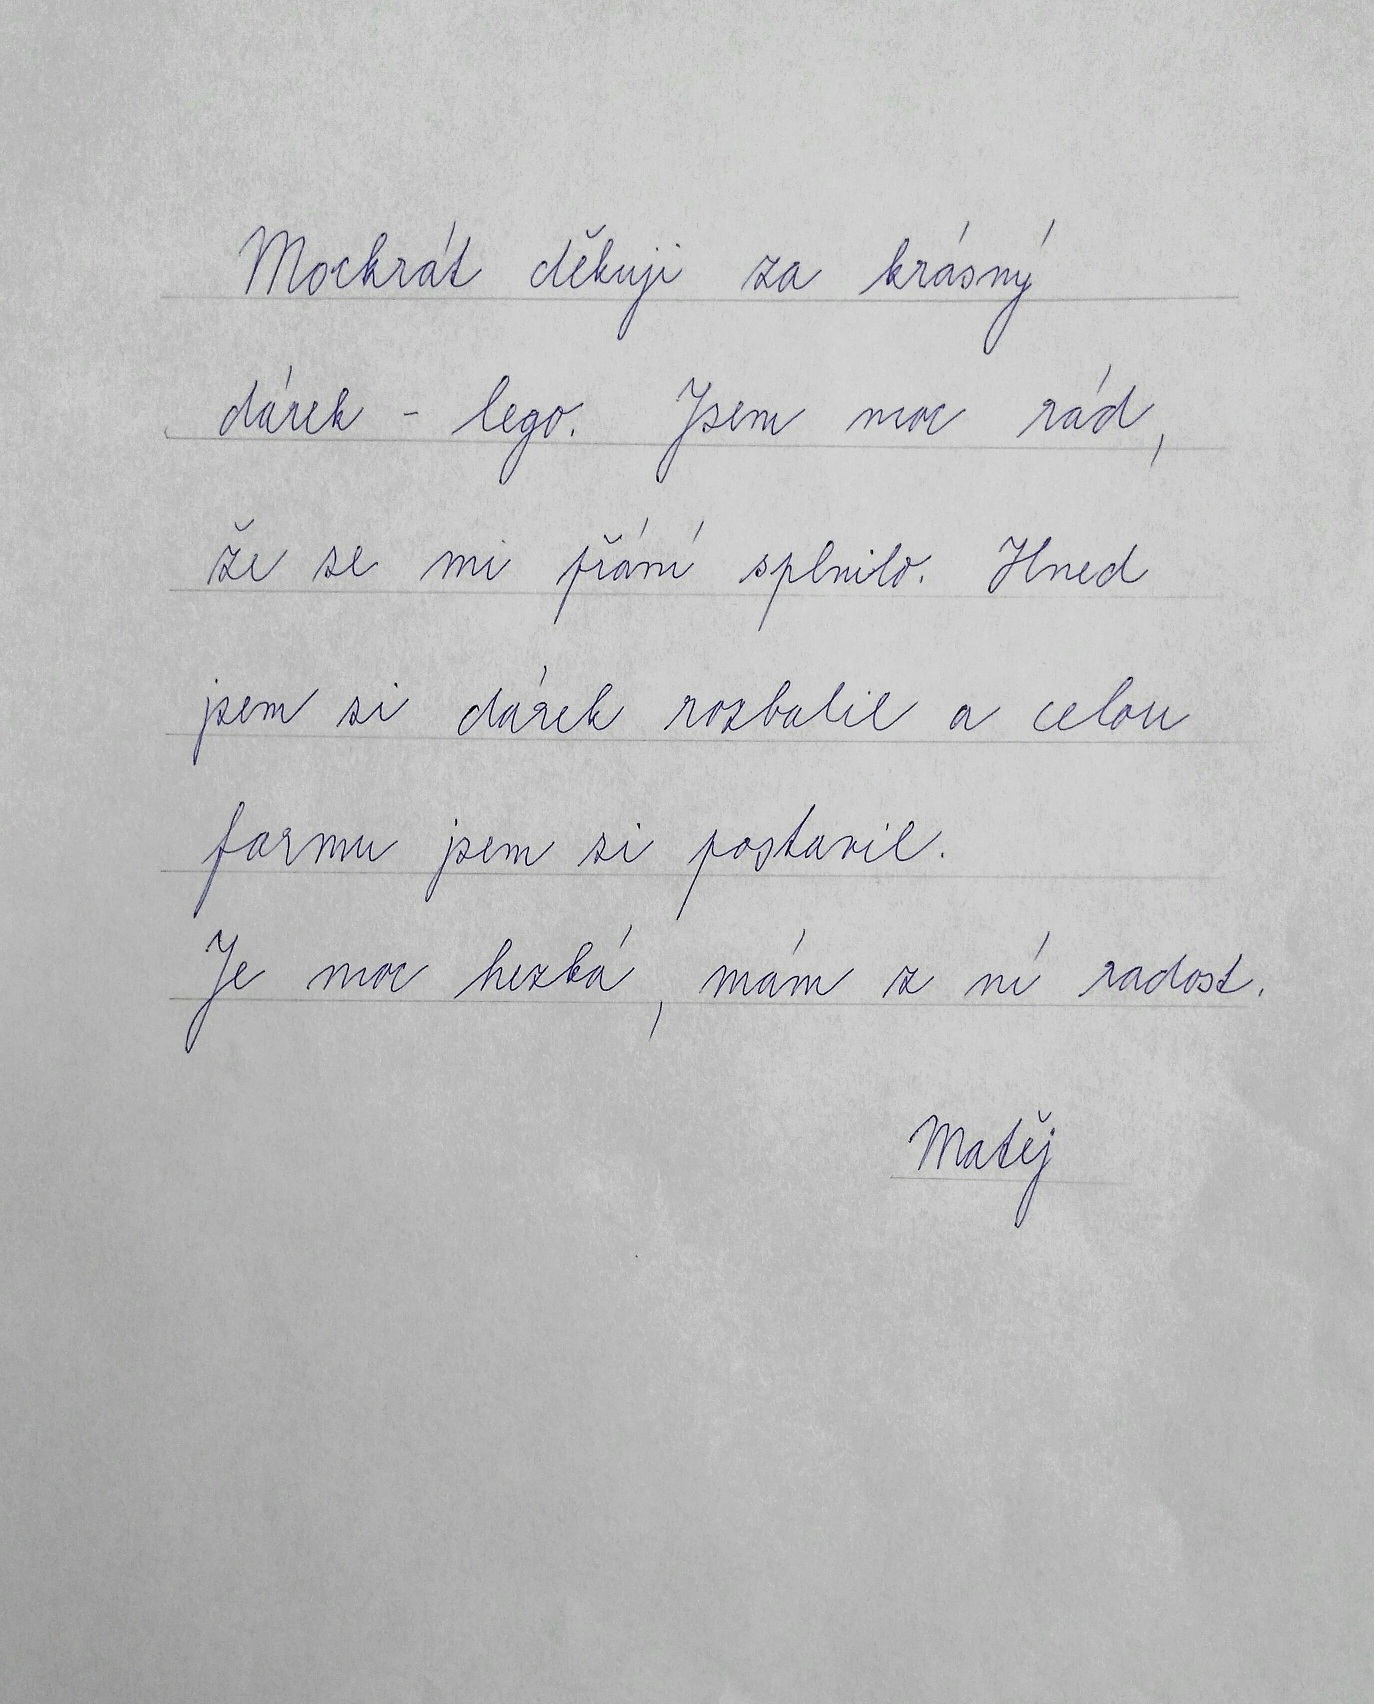 Mockrát děkuji za krásný
dárek - lego. Jsem moc rád,
že se mi přání splnilo. Hned
jsem si dárek rozbalil a celou
farmu jsem si postavil.
Je moc hezká, mám z ní radost.
Matěj